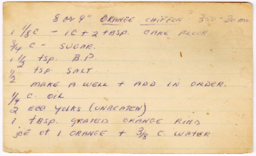 8 OR 9" ORANGE CHIFFON 350 - 30 min
1 1/8 C - 1C + 2 TBSP. CAKE FLOUR
3/4 C - SUGAR
1 1/2 tsp. B.P.
1/2 tsp SALT
MAKE A WELL + ADD IN ORDER.
1/4 C. OIL
2 EGG YOLKS (UNBEATEN)
1 TBSP. GRATED ORANGE RIND
OF 1 ORANGE + 3/8 C. WATER